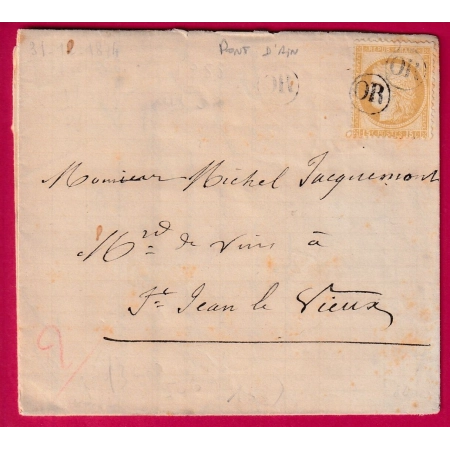 PONT D'AIN
OR
OR
OR
Monsieur Michel Jacquemont
Md de Vins à
St Jean le Vieux
2